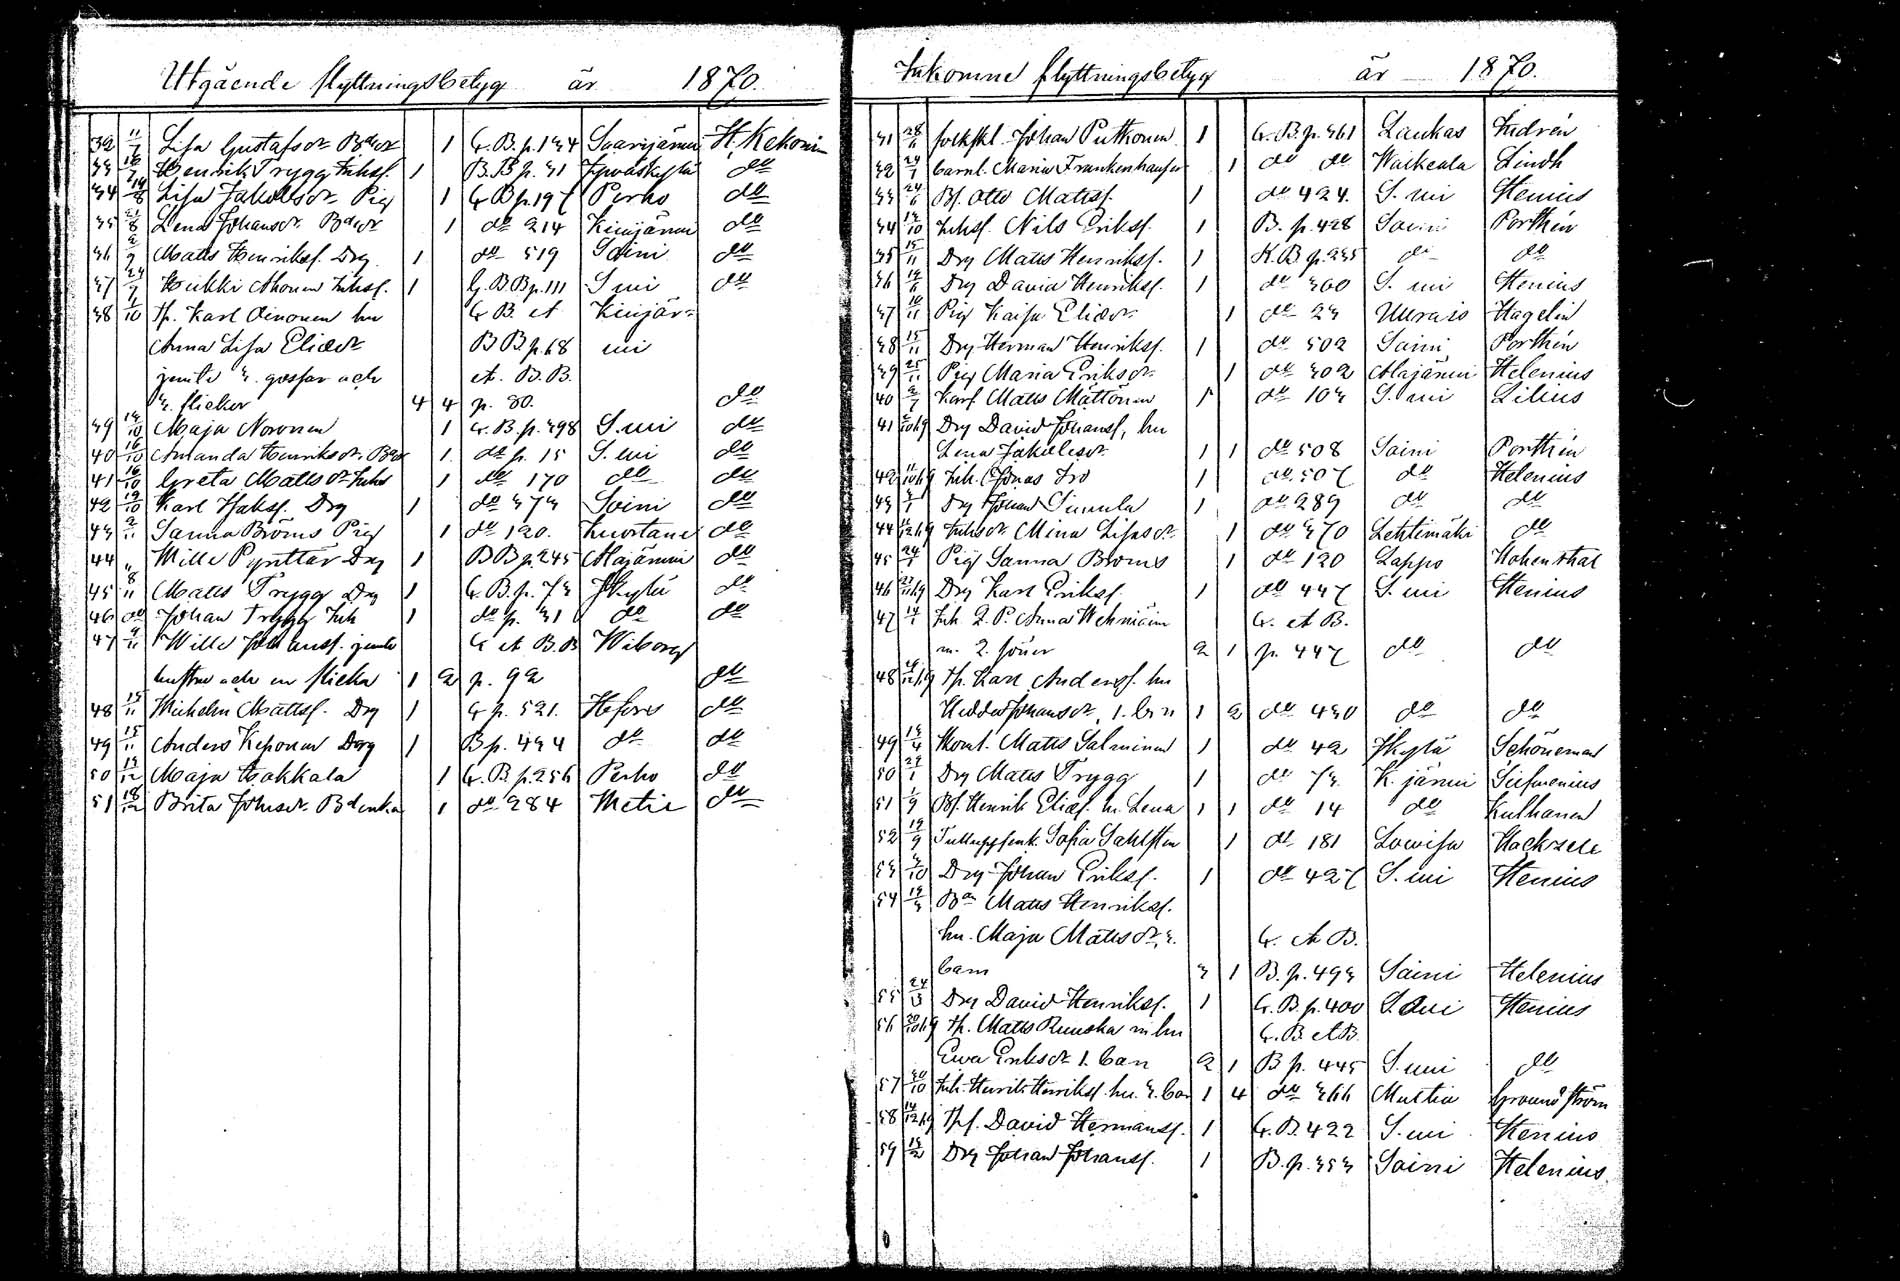 Utgående flyttningsbetyg år 1870.
32 11/7 Lisa Gustafsdr Bdr 1 G.B.p.134 Saarijärvi H. Kekonin
33 16/7 Henrik Trygg Inhs. 1 B.B.p. 31 Jyväskylä do
34 14/8 Lisa Jakobsdr Pig 1 G B p. 197 Perho do
35 21/8 Lena Johansdr 1 do 214 Kivijärvi do
36 2/9 Matts Henrikss. Drg 1 do 519 Soini do
37 24/9 Heikki Ahonen Inhs. 1 G.B B p. 111 S. vi do
38 1/10 Tp. Karl Oinonen hu G B. et Kivijär-
Anna Lisa Eliedr B B p. 68 vi
jemte 3. gossar och et. B.B.
3. flickor 4 4 p. 80. do
39 14/10 Maja Noronen 1 G.B.p. 398 S.vi do
40 16/10 Amanda Henriksdr 1 do p. 15 S. vi do
41 16/10 Greta Mattsdr Inhs 1 do 170 do do
42 19/10 Karl Isaks. Drg 1 do 373 Soini do
43 2/11 Sanna Broms Pig 1 do 120. Kuortane do
44 " Wille Pynttär Drg 1 B B p. 245 Alajärvi do
45 8/11 Matts Trygg Drg 1 G.B.p. 73 Jkylä do
46 do Johan Trygg Inh 1 do p. 31 do do
47 9/11 Wille Johanss. jemte G et B.B Wiborg
hustru och en flicka 1 2 p. 92 do
48 15/11 Wilhelm Mattss. Drg 1 G p. 521. Hfors do
49 15/11 Anders Keponen Drg 1 B p. 434 do do
50 14/12 Maja Hokkala 1 G.B.p 256 Perho do
51 18/12 Brita Johsdr Bdenka 1 do 284 Metie do
Inkomne flyttningsbetyg år 1870.
31 28/6 folkskl. Johan Putkonen 1 G.B.p. 361 Laukas Indrén
32 29/7 barnl. Maria Frankenhauser 1 do do Walkeala Lindh
33 24/6 Bs. Otto Matts. 1 do 424. S. vi Stenius
34 14/10 Inhs. Nils Eriks. 1 B. p. 428 Soini Porthén
35 15/11 Drg Matts Henriks. 1 K. B p. 235 do do
36 14/6 Drg David Henriks. 1 do 360 S. vi Stenius
37 10/11 Pig Kaisa Eliedr 1 do 23 Uurais Hagelin
38 15/11 Drg Herman Henriks. 1 do 502 Soini Porthén
39 25/11 Pig Maria Eriksdr 1 do 302 Alajärvi Helenius
40 2/7 Karl Matts Mättönen 1 do 103 S. vi Lilius
41 Drg David Johanss, hu
Lena Jakobsdr 1 1 do 508 Soini Porthén
42 Inh. Jonas Iro 1 do. 507 do Helenius
43 Drg Johan Sinnela 1 do 289 do do
44 Inhsdr Mina Lisasdr 1 do 370 Lehtimäki do
45 24/1 Pig Sanna Broms 1 do 120 Lappo Hohenthal
46 Drg Karl Eriks. 1 do 447 S. vi Stenius
47 14/1 Inh. Anna Wehniäin G. et B.
m. 2. söner 2 1 p. 447 do do
48 Tp. Karl Anderss. hu
Hedda Johansdr, 1. barn 1 2 do 430 do do
49 14/4 Koml. Matts Salminen 1 do 42 Jkylä Schöneman
50 29/1 Drg Matts Trygg 1 do 73 K. järvi
51 1/9 Bs. Henrik Elias. hu. Lena 1 1 do 14 do Kulhanen
52 19/9 Sofia Sahlsten 1 do 181 Lowisa Hackzell
53 3/10 Drg Johan Eriks. 1 do 427 S. vi Stenius
54 14/3 Bon Matts Henriks.
hu. Maja Mattsdr, 3. G. et B.
barn 3 1 B. p. 493 Soini Helenius
55 Drg David Henriks. 1 G. B. p. 400 S. vi Stenius
56 Tp. Matts Ruuska m hu G. B. et B.
Ewa Eriksdr 1. barn 2 1 B p. 445 S. vi do
57 30/10 Inh. Henrik Henriks. hu. 3. bar 1 4 do 366 Multia Grounstrôm
58 Tps. David Hermans. 1 G. B. 422 S. vi Stenius
59 15/2 Drg Johan Johans. 1 B. p. 353 Soini Helenius.